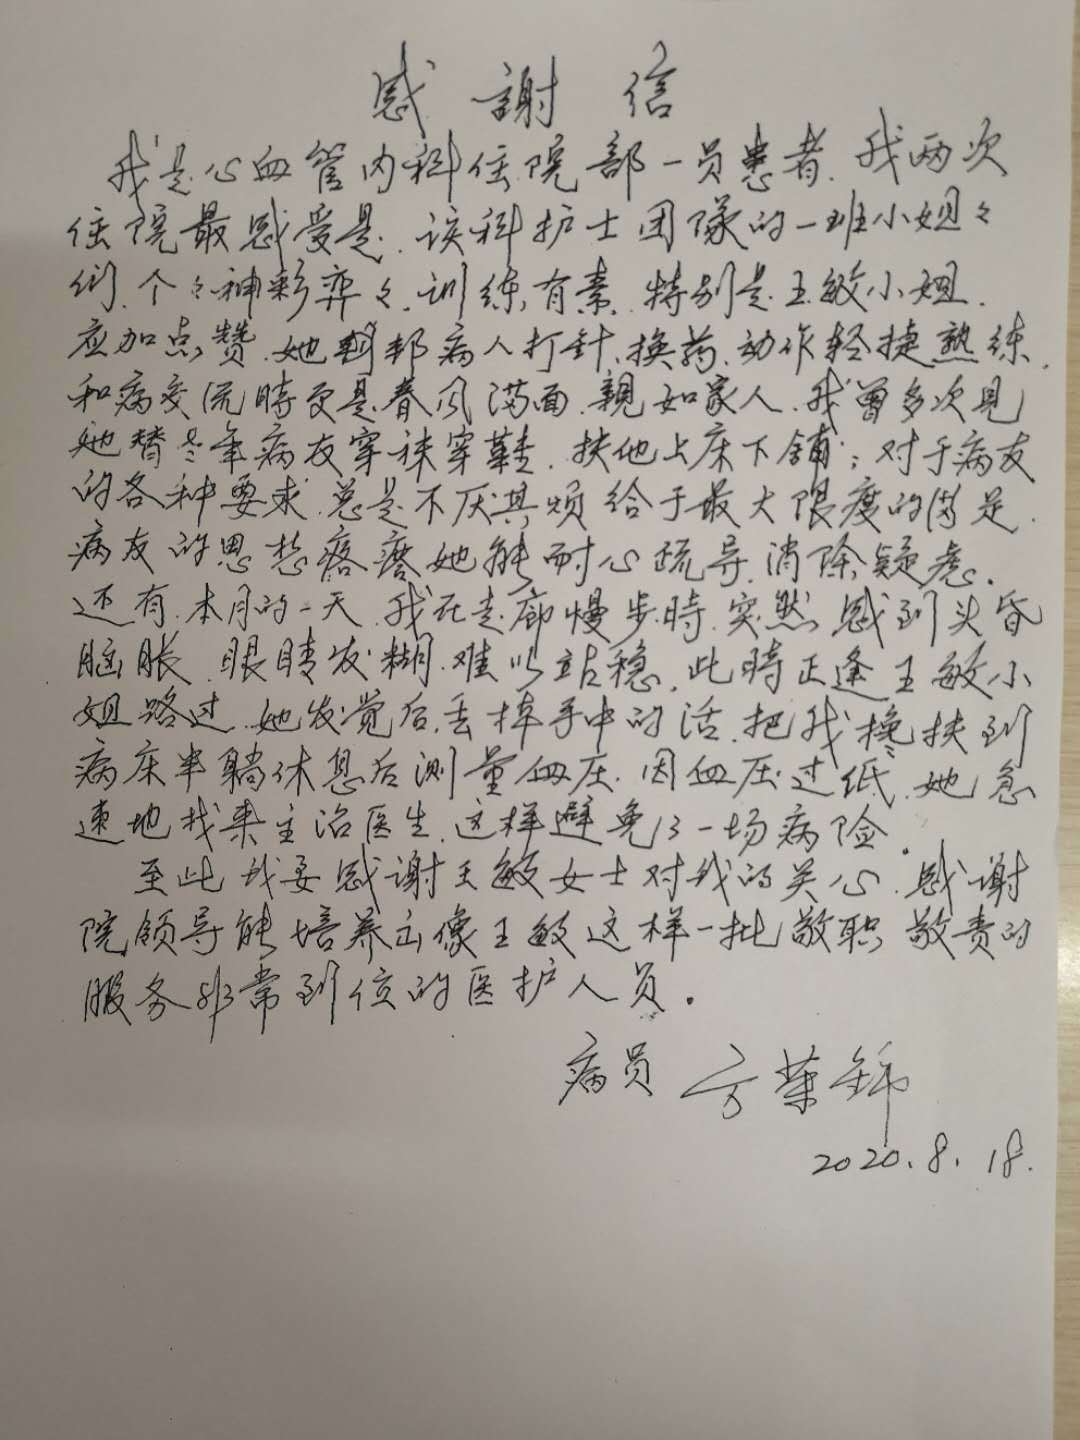 感謝信
我是心血管内科住院部一员患者.我两次
住院最感受是.该科护士团隊的一班小姐々
们.个々神彩弈々.训练有素.特别是王敏小姐.
应加点赞.她帮病人打針、换药.动作轻捷熟练.
和病交流時更是春风满面.親如家人.我曾多次見
她替老年病友穿袜穿鞋.扶他上床下铺；对于病友
的各种要求.总是不厌其烦给于最大限度的满足.
病友的思想疙瘩她能耐心疏导.消除疑虑.
还有.本月的一天.我在走廊慢步時.突然感到头昏
脑胀.眼睛发糊.难以站稳.此時正逢王敏小
姐路过.她发觉后丢掉手中的活.把我搀扶到
病床半躺休息后测量血压.因血压过低.她急
速地找来主治医生.这样避免了一场病险.
至此我要感谢王敏女士对我的关心.感谢
院领导能培养出像王敏这样一批敬职敬责的
服务非常到位的医护人员.
病员 方荣锦
2020.8.18.